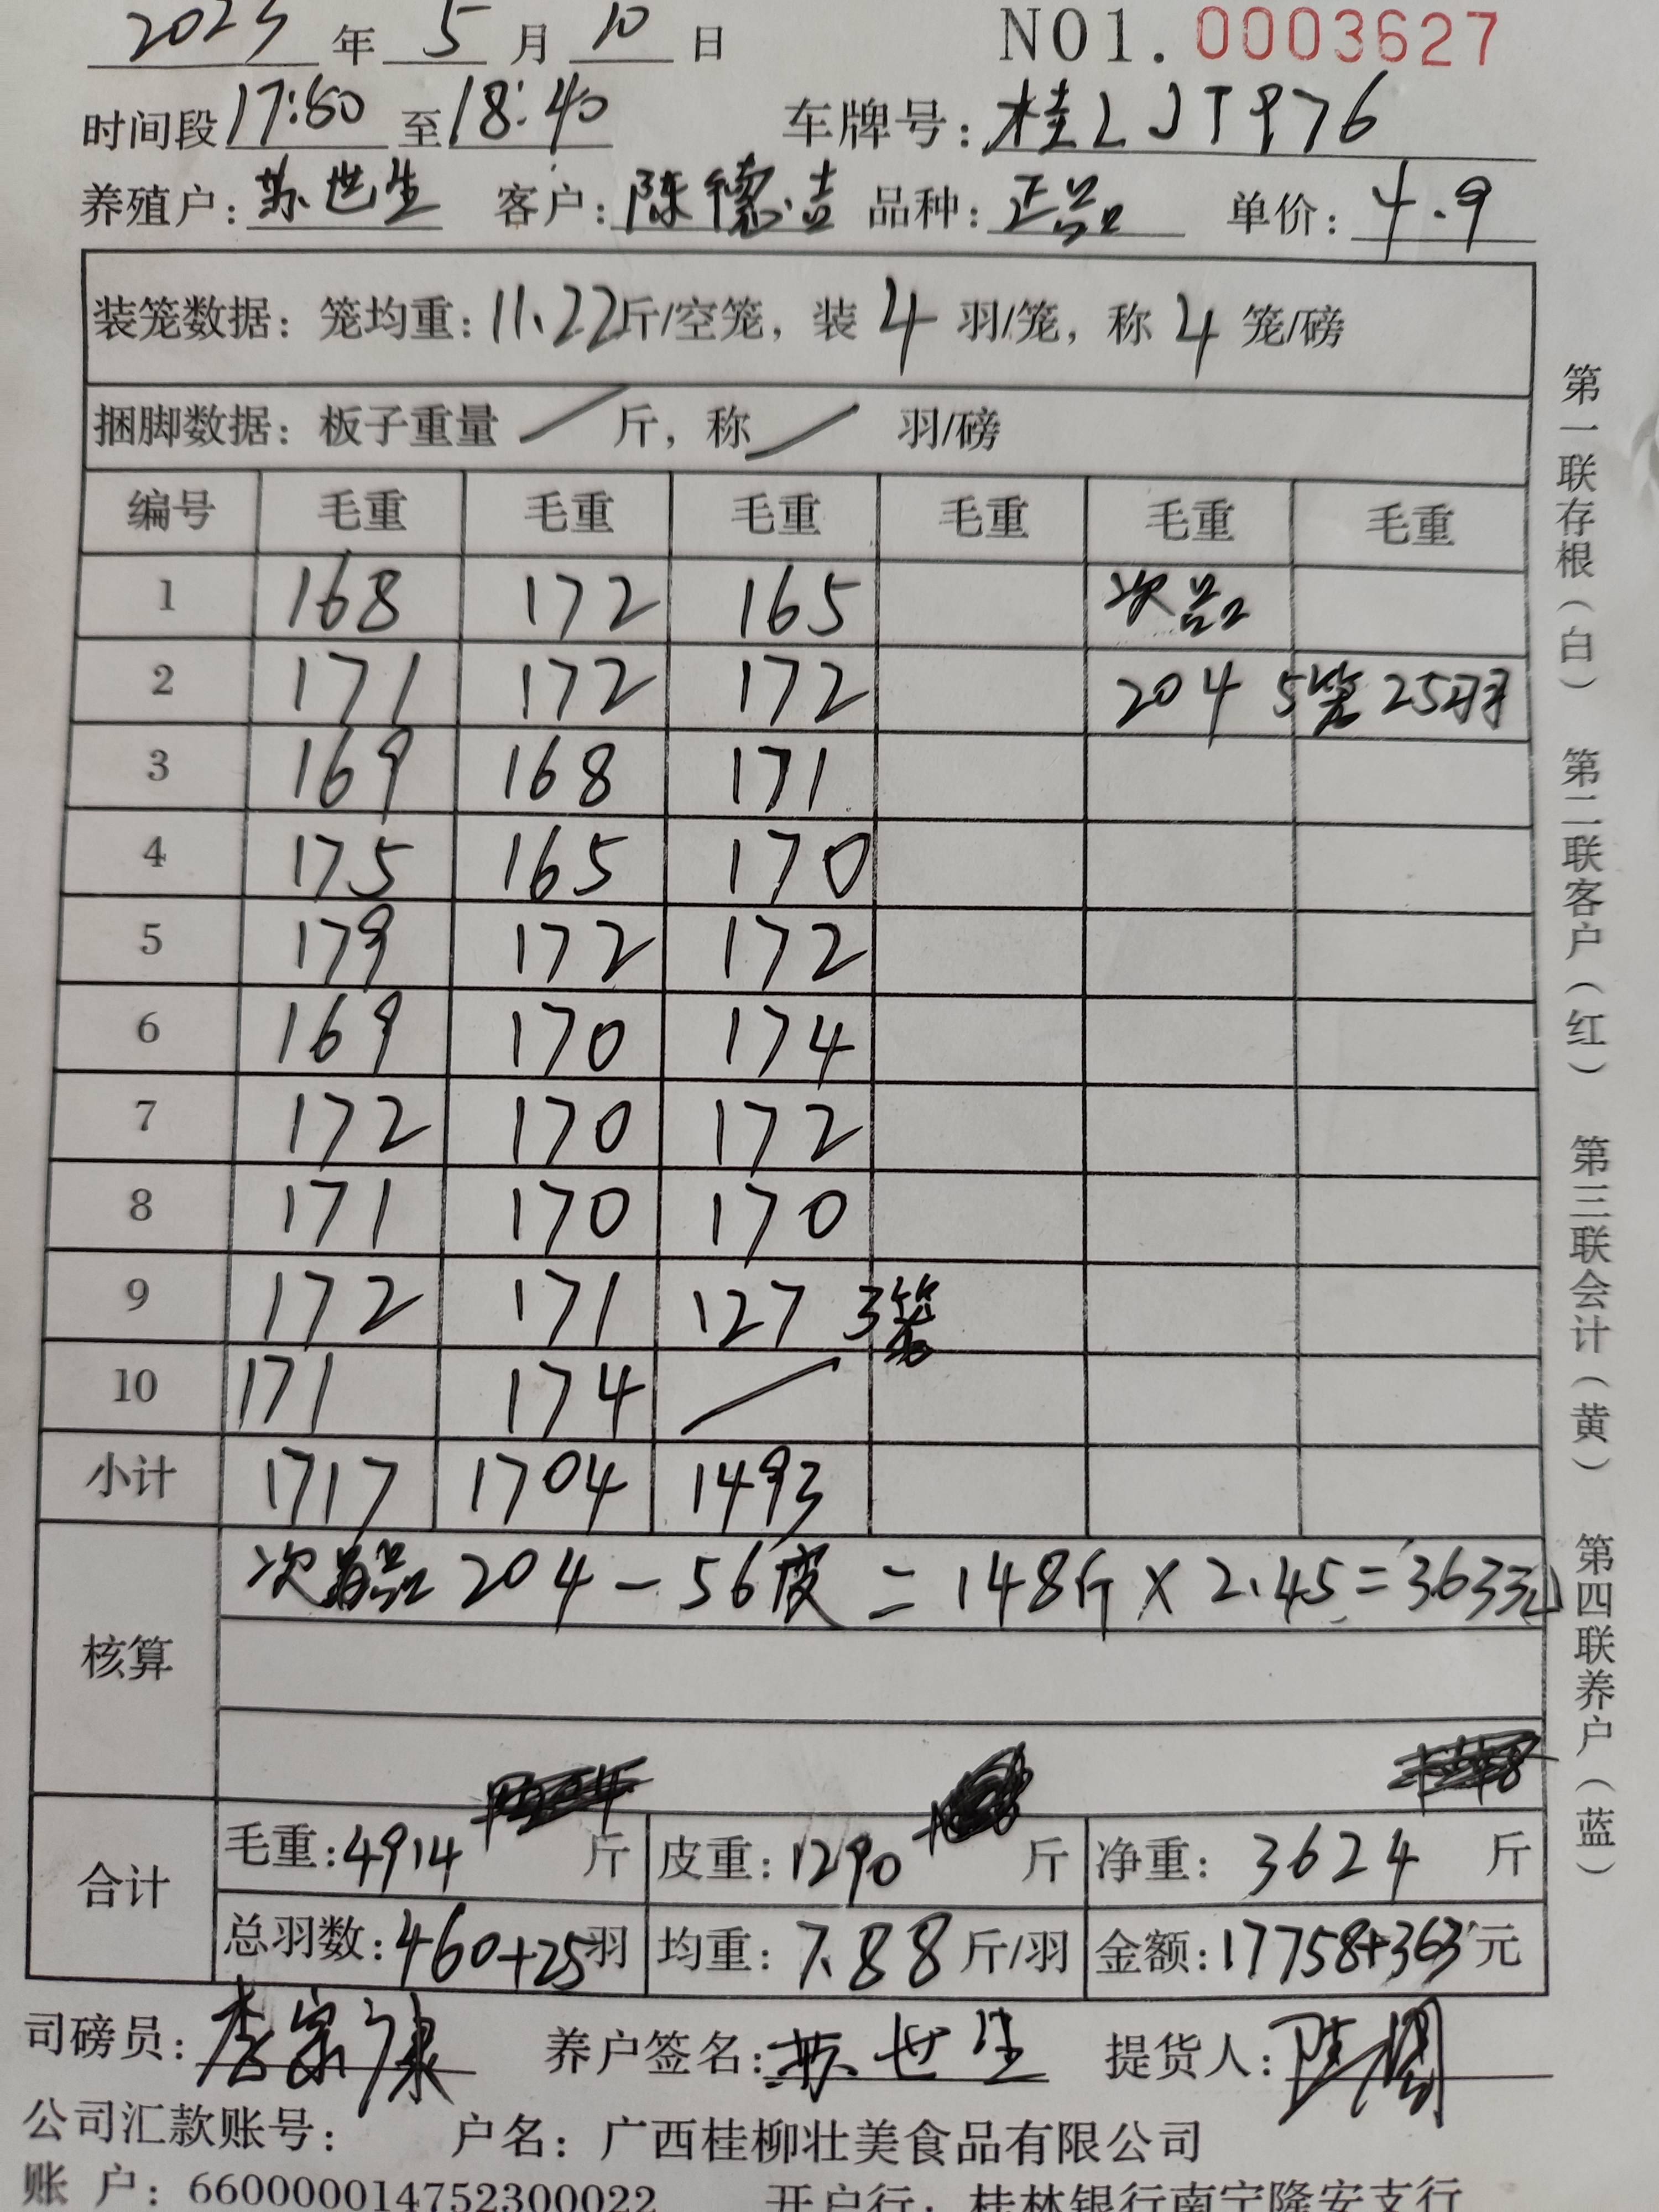 2023 年 5 月 10 日 NO1. 0003627
时间段 17:50 至 18:40 车牌号: 桂LJT976
养殖户: 苏世生 客户: 陈德吉 品种: 正品 单价: 4.9
装笼数据: 笼均重: 11.22斤/空笼, 装 4 羽/笼, 称 4 笼/磅
捆脚数据: 板子重量 / 斤, 称 / 羽/磅
编号 毛重 毛重 毛重 毛重 毛重 毛重
1 168 172 165 次品
2 171 172 172 204 5笼 25羽
3 169 168 171
4 175 165 170
5 179 172 172
6 169 170 174
7 172 170 172
8 171 170 170
9 172 171 127 3笼
10 171 174 /
小计 1717 1704 1493
核算 次品 204 - 56皮 = 148斤 × 2.45 = 363元
合计 毛重: 4914 斤 皮重: 1290 斤 净重: 3624 斤
总羽数: 460+25羽 均重: 7.88 斤/羽 金额: 17758+363 元
司磅员: 李宗康 养户签名: 苏世生 提货人:
公司汇款账号: 户名: 广西桂柳壮美食品有限公司
账 户: 660000014752300022 开户行: 桂林银行南宁隆安支行
第一联存根(白) 第二联客户(红) 第三联会计(黄) 第四联养户(蓝)